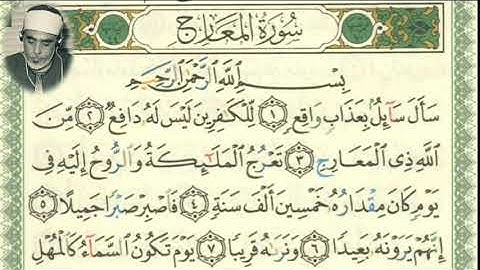 سُورَةُ المَعَارِجِ
بِسْمِ اللَّهِ الرَّحْمَٰنِ الرَّحِيمِ
سَأَلَ سَآئِلُۢ بِعَذَابٖ وَاقِعٖ ١ لِّلۡكَٰفِرِينَ لَيۡسَ لَهُۥ دَافِعٞ ٢ مِّنَ
ٱللَّهِ ذِي ٱلۡمَعَارِجِ ٣ تَعۡرُجُ ٱلۡمَلَٰٓئِكَةُ وَٱلرُّوحُ إِلَيۡهِ فِي
يَوۡمٖ كَانَ مِقۡدَارُهُۥ خَمۡسِينَ أَلۡفَ سَنَةٖ ٤ فَٱصۡبِرۡ صَبۡرٗا جَمِيلًا ٥
إِنَّهُمۡ يَرَوۡنَهُۥ بَعِيدٗا ٦ وَنَرَىٰهُ قَرِيبٗا ٧ يَوۡمَ تَكُونُ ٱلسَّمَآءُ كَٱلۡمُهۡلِ